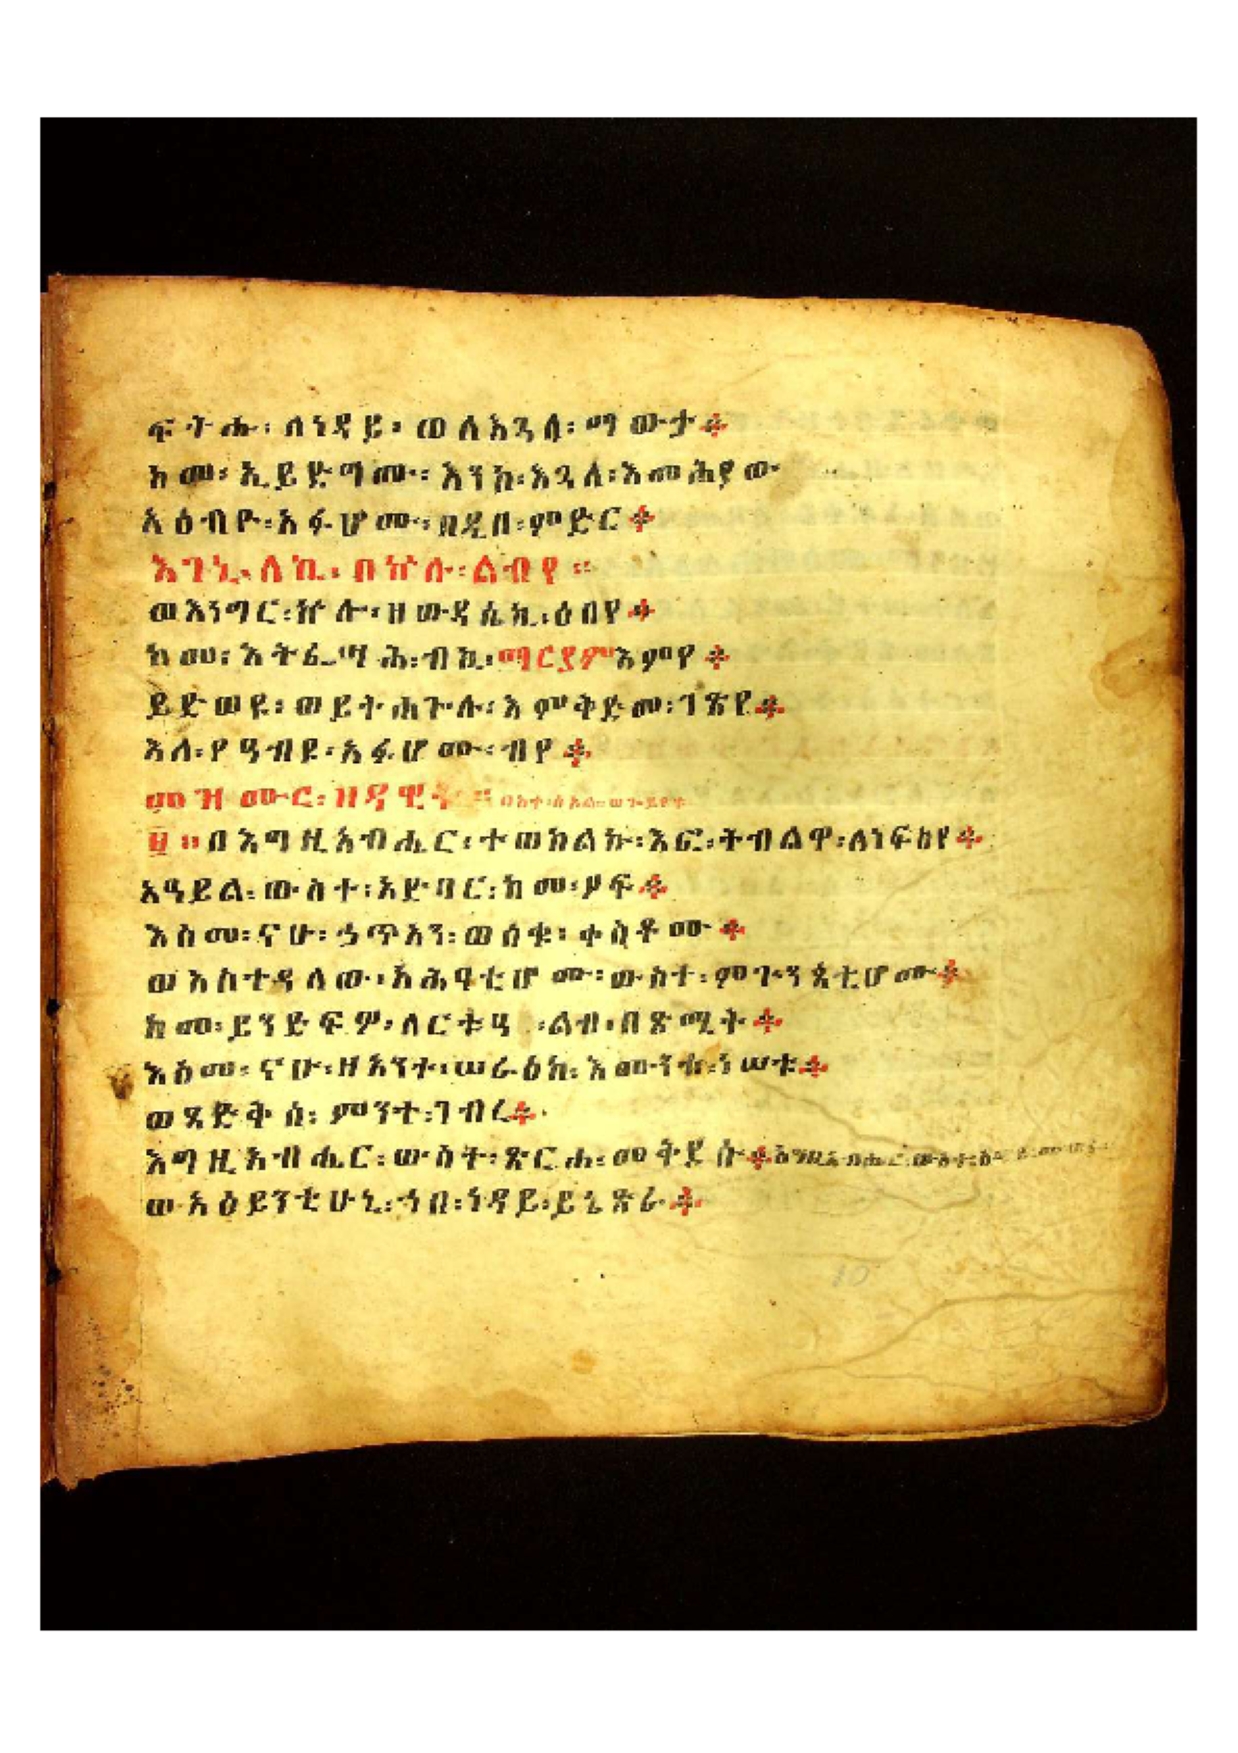 ፍትሐ፡ ለነዳይ፡ ወለእጓለ፡ ማውታ፨
ከመ፡ ኢይድግሙ፡ እንከ፡ እጓለ፡ እመሕያው
አዕብዮ፡ አፉሆሙ፡ በዲበ፡ ምድር፨
እገኒ፡ ለኪ፡ በኵሉ፡ ልብየ፡፡
ወእነግር፡ ኵሎ፡ ዘውዳሴኪ፡ ዕበየ፨
ከመ፡ እትፌሣሕ፡ ብኪ፡ ማርያምእምየ፨
ይድወዩ፡ ወይትሐጐሉ፡ እምቅድመ፡ ገጽየ፨
እለ፡ የዓብዩ፡ አፉሆሙ፡ ብየ፨
መዝሙር፡ ዘዳዊት፡፡
፲፡፡ በእግዚአብሔር፡ ተወከልኩ፡ እፎ፡ ትብልዋ፡ ለነፍስየ፨
አዓይል፡ ውስተ፡ አድባር፡ ከመ፡ ዖፍ፨
እስመ፡ ናሁ፡ ኃጥአን፡ ወሰቁ፡ ቀስቶሙ፨
ወአስተዳለው፡ አሕፃቲሆሙ፡ ውስተ፡ ምጕንጳቲሆሙ፨
ከመ፡ ይንድፍዎ፡ ለርቱዓ፡ ልብ፡ በጽሚት፨
እስመ፡ ናሁ፡ ዘአንተ፡ ሠራዕከ፡ እሙንቱ፡ ነሠቱ፨
ወጻድቅሰ፡ ምንተ፡ ገብረ፨
እግዚአብሔር፡ ውስት፡ ጽርሐ፡ መቅደሱ፨ እግዚአብሔር፡ ውስተ፡
ወአዕይንቲሁኒ፡ ኀበ፡ ነዳይ፡ ይኔጽራ፨
10